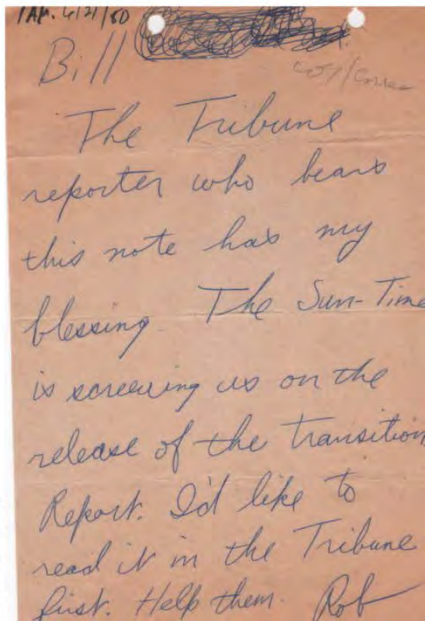 1 AM. 6/21/80
Bill
The Tribune
reporter who bears
this note has my
blessing. The Sun-Time
is screwing us on the
release of the transition
Report. I'd like to
read it in the Tribune
first. Help them. Rob